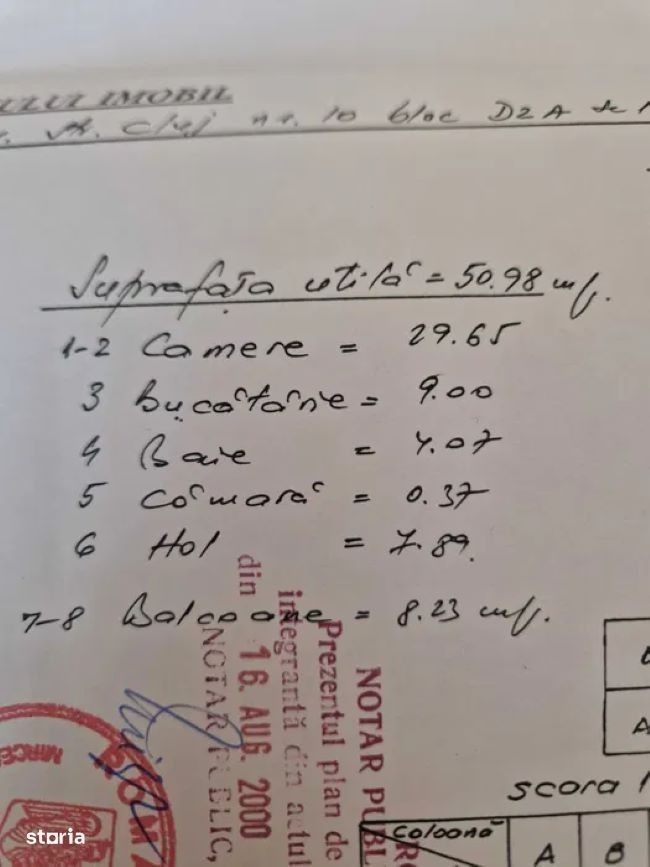 ULUI IMOBIL
str. Cluj nr. 10 bloc D2A
Suprafața utilă = 50.98 mp.
1-2 Camere = 29.65
3 Bucătărie = 9.00
4 Baie = 4.07
5 Cămară = 0.37
6 Hol = 7.89
7-8 Balcoane = 8.23 mp.
NOTAR PUBL
Prezentul plan de
integrantă din actul
din 16. AUG. 2000
NOTAR PUBLIC,
scara 1
Coloană
A
B
A
storia